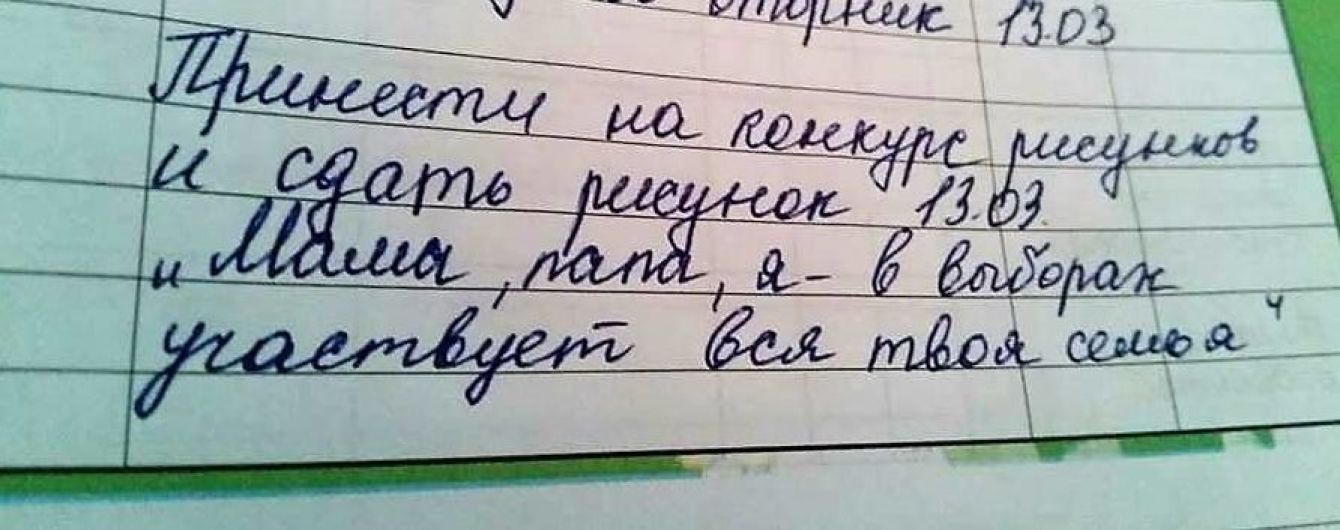 вторник 13.03
Принести на конкурс рисунков
и сдать рисунок 13.03.
„Мама, папа, я - в выборах
участвует вся твоя семья"